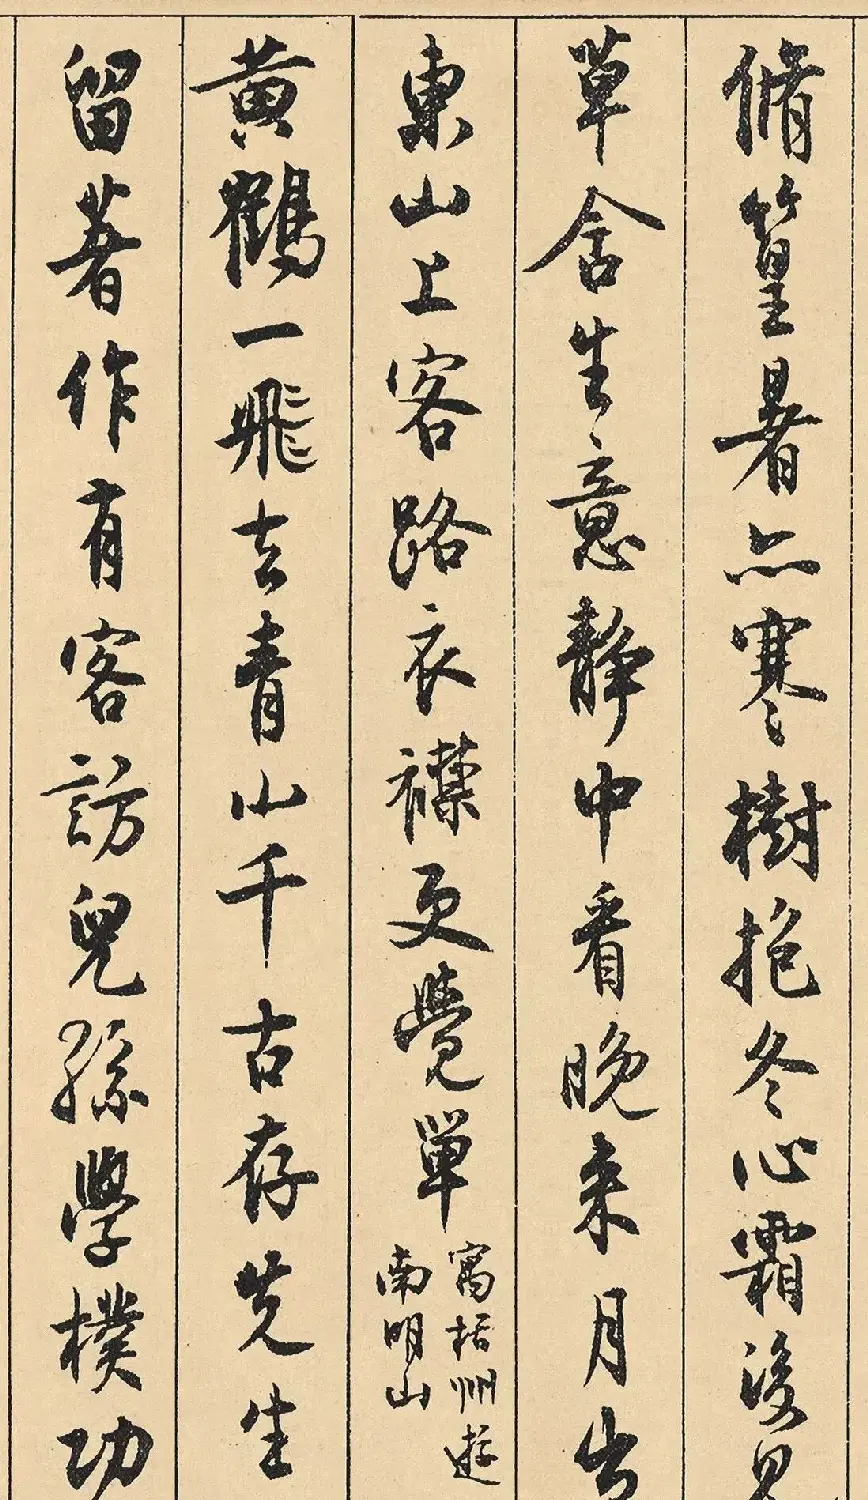 脩篁暑亦寒樹抱冬心霜後見
草舍生意靜中看晚来月出
東山上客路衣襟更覺單
寓括州遊
南明山
黄鶴一飛去青山千古存先生
留著作有客訪兒孫學樸功